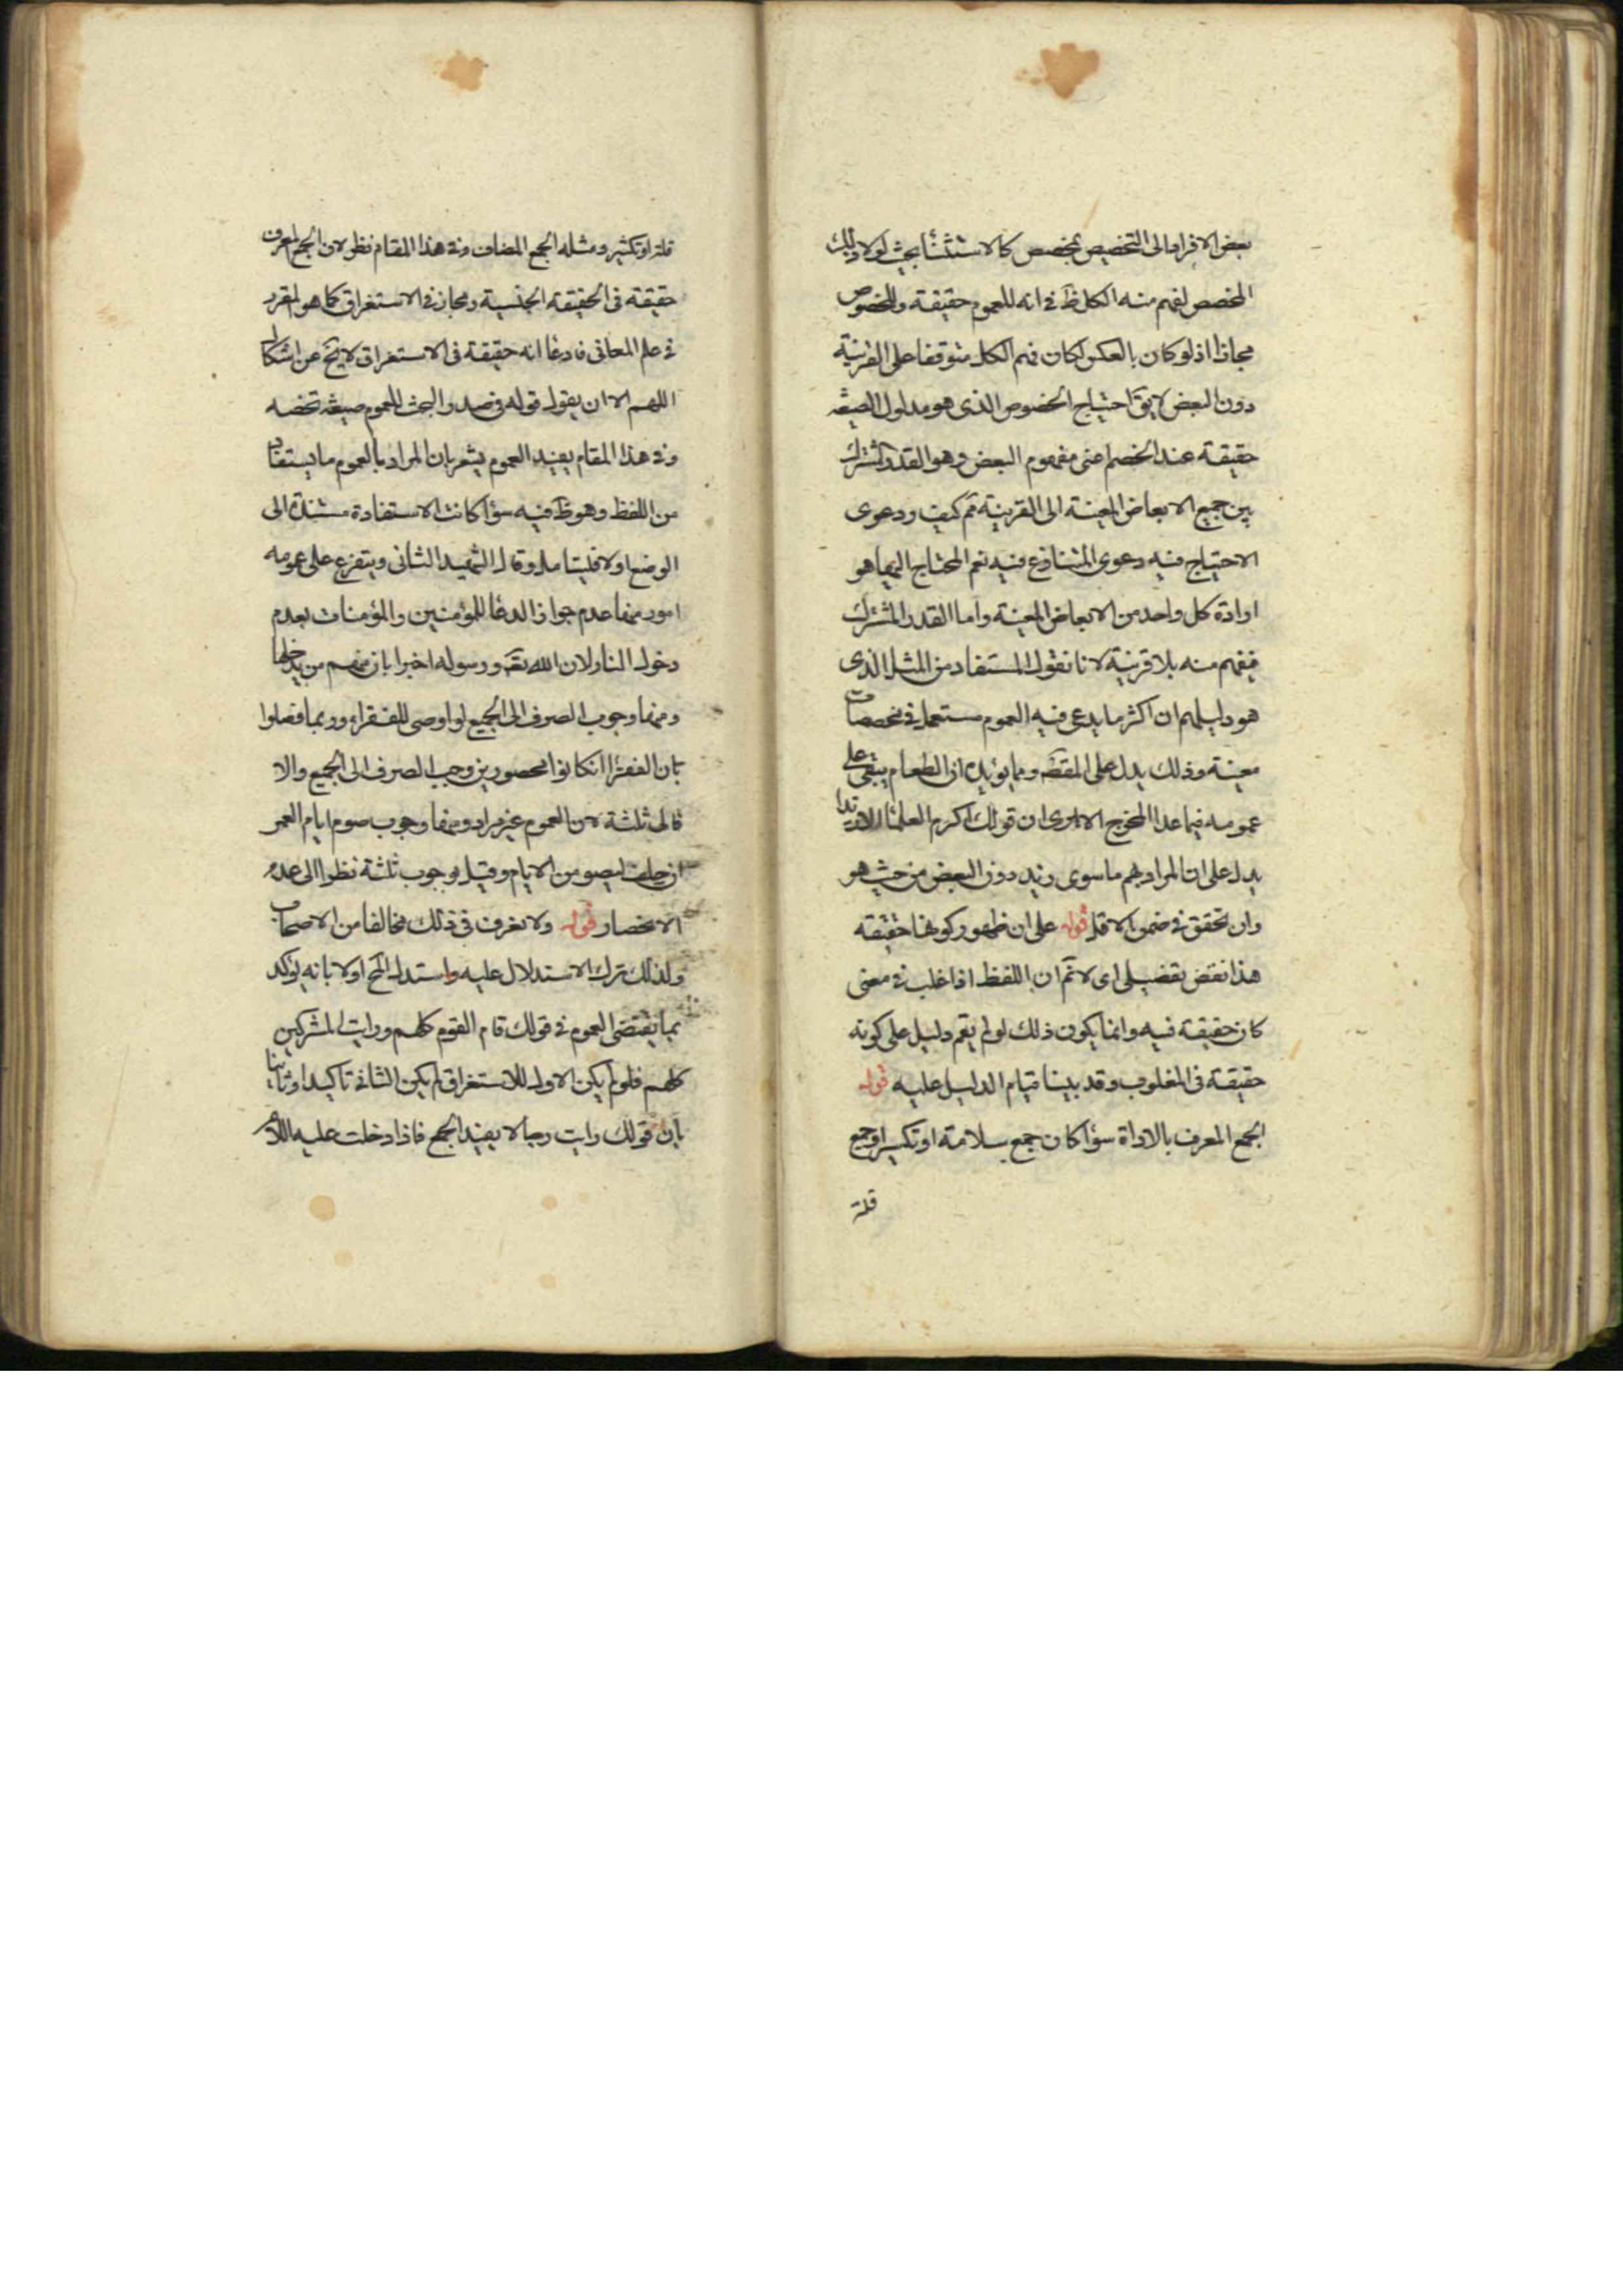 بعض الافراد الى التخصيص بمخصص كالاستثنأ بحيث لولا ذلك
المخصص لفهم منه الكل ظ في انه للعموم حقيقة وللخصوص
مجازا اذ لو كان بالعكس لكان فهم الكل متوقفا على القرينة
دون البعض لا يق احتياج الخصوص الذى هو مدلول الصيغة
حقيقة عند الخصم اعنى مفهوم البعض وهو القدر المشترك
بين جميع الابعاض المعينة الى القرينة ثم كيف ودعوى
الاحتياج فيه دعوى المتنازع فيه نعم المحتاج اليها هو
ارادة كل واحد من الابعاض المعينة واما القدر المشترك
فيفهم منه بلا قرينة لانا نقول المستفاد من المثل الذى
هو دليلهم ان اكثر ما يدعى فيه العموم مستعمل في مخصصات
معينة وذلك يدل على المقصد ومما يؤيده ان الطعام يبقى على
عمومه فيما عدا المخرج الا ترى ان قولك اكرم العلمأ الا زيدا
يدل على ان المراد هم ما سوى زيد دون البعض من حيث هو
وان تحقق في ضمن الاقل قوله على ان ظهور كونها حقيقة
هذا نقض تفضيلى اى لانم ان اللفظ اذا غلب في معنى
كان حقيقة فيه وانما يكون ذلك لو لم يقم دليل على كونه
حقيقة فى المغلوب وقد بينا قيام الدليل عليه قوله
الجمع المعرف بالاداة سوأ كان جمع سلامة او تكسير او جمع
قلة
قلة او تكثير ومثله الجمع المضاف وفي هذا المقام نظر لان الجمع المعرف
حقيقة فى الحقيقة الجنسية ومجاز في الاستغراق كما هو المقرر
في علم المعانى فادعا انه حقيقة فى الاستغراق لا يخ عن اشكال
اللهم الا ان يقول قوله في صدر البحث للعموم صيغة تخصه
وفي هذا المقام يفيد العموم يشعر بان المراد بالعموم ما يستفاد
من اللفظ وهو ظ فيه سوأ كانت الاستفادة مستندة الى
الوضع او لا فليتامل وقال الشهيد الثانى ويتفرع على عمومه
امور منها عدم جواز الدعا للمؤمنين والمؤمنات بعدم
دخول النار لان الله تعه ورسوله اخبرا بان منهم من يدخلها
ومنها وجوب الصرف الى الجميع لو اوصى للفقراء وربما فصلوا
بان الفقرا ان كانوا محصورين وجب الصرف الى الجميع والا
فالى ثلثة لان العموم غير مراد ومنها وجوب صوم ايام العمر
ان حلف ليصومن الايام وقيل بوجوب ثلثة نظرا الى عدم
الانحصار قوله ولا نعرف فى ذلك مخالفا من الاصحاب
ولذلك ترك الاستدلال عليه واستدل الح اولا بانه يؤكد
بما يقتضى العموم في قولك قام القوم كلهم ورايت المشركين
كلهم فلو لم يكن الاول للاستغراق لم يكن الثانى تاكيدا وثانيا
بان قولك رايت رجالا يفيد الجمع فاذا دخلت عليه اللام